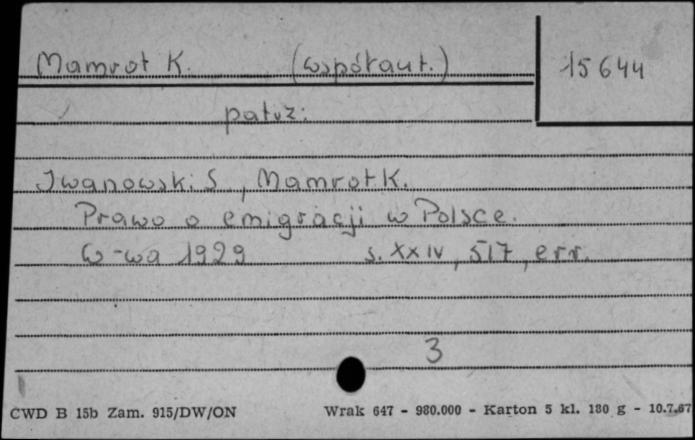 Mamrot K. (współaut.) 15644
patrz:
Iwanowski S., Mamrot K.
Prawo o emigracji w Polsce.
W-wa 1929 s. XXIV, 517, err.
3
CWD B 15b Zam. 915/DW/ON Wrak 647 - 980.000 - Karton 5 kl. 180 g - 10.7.67